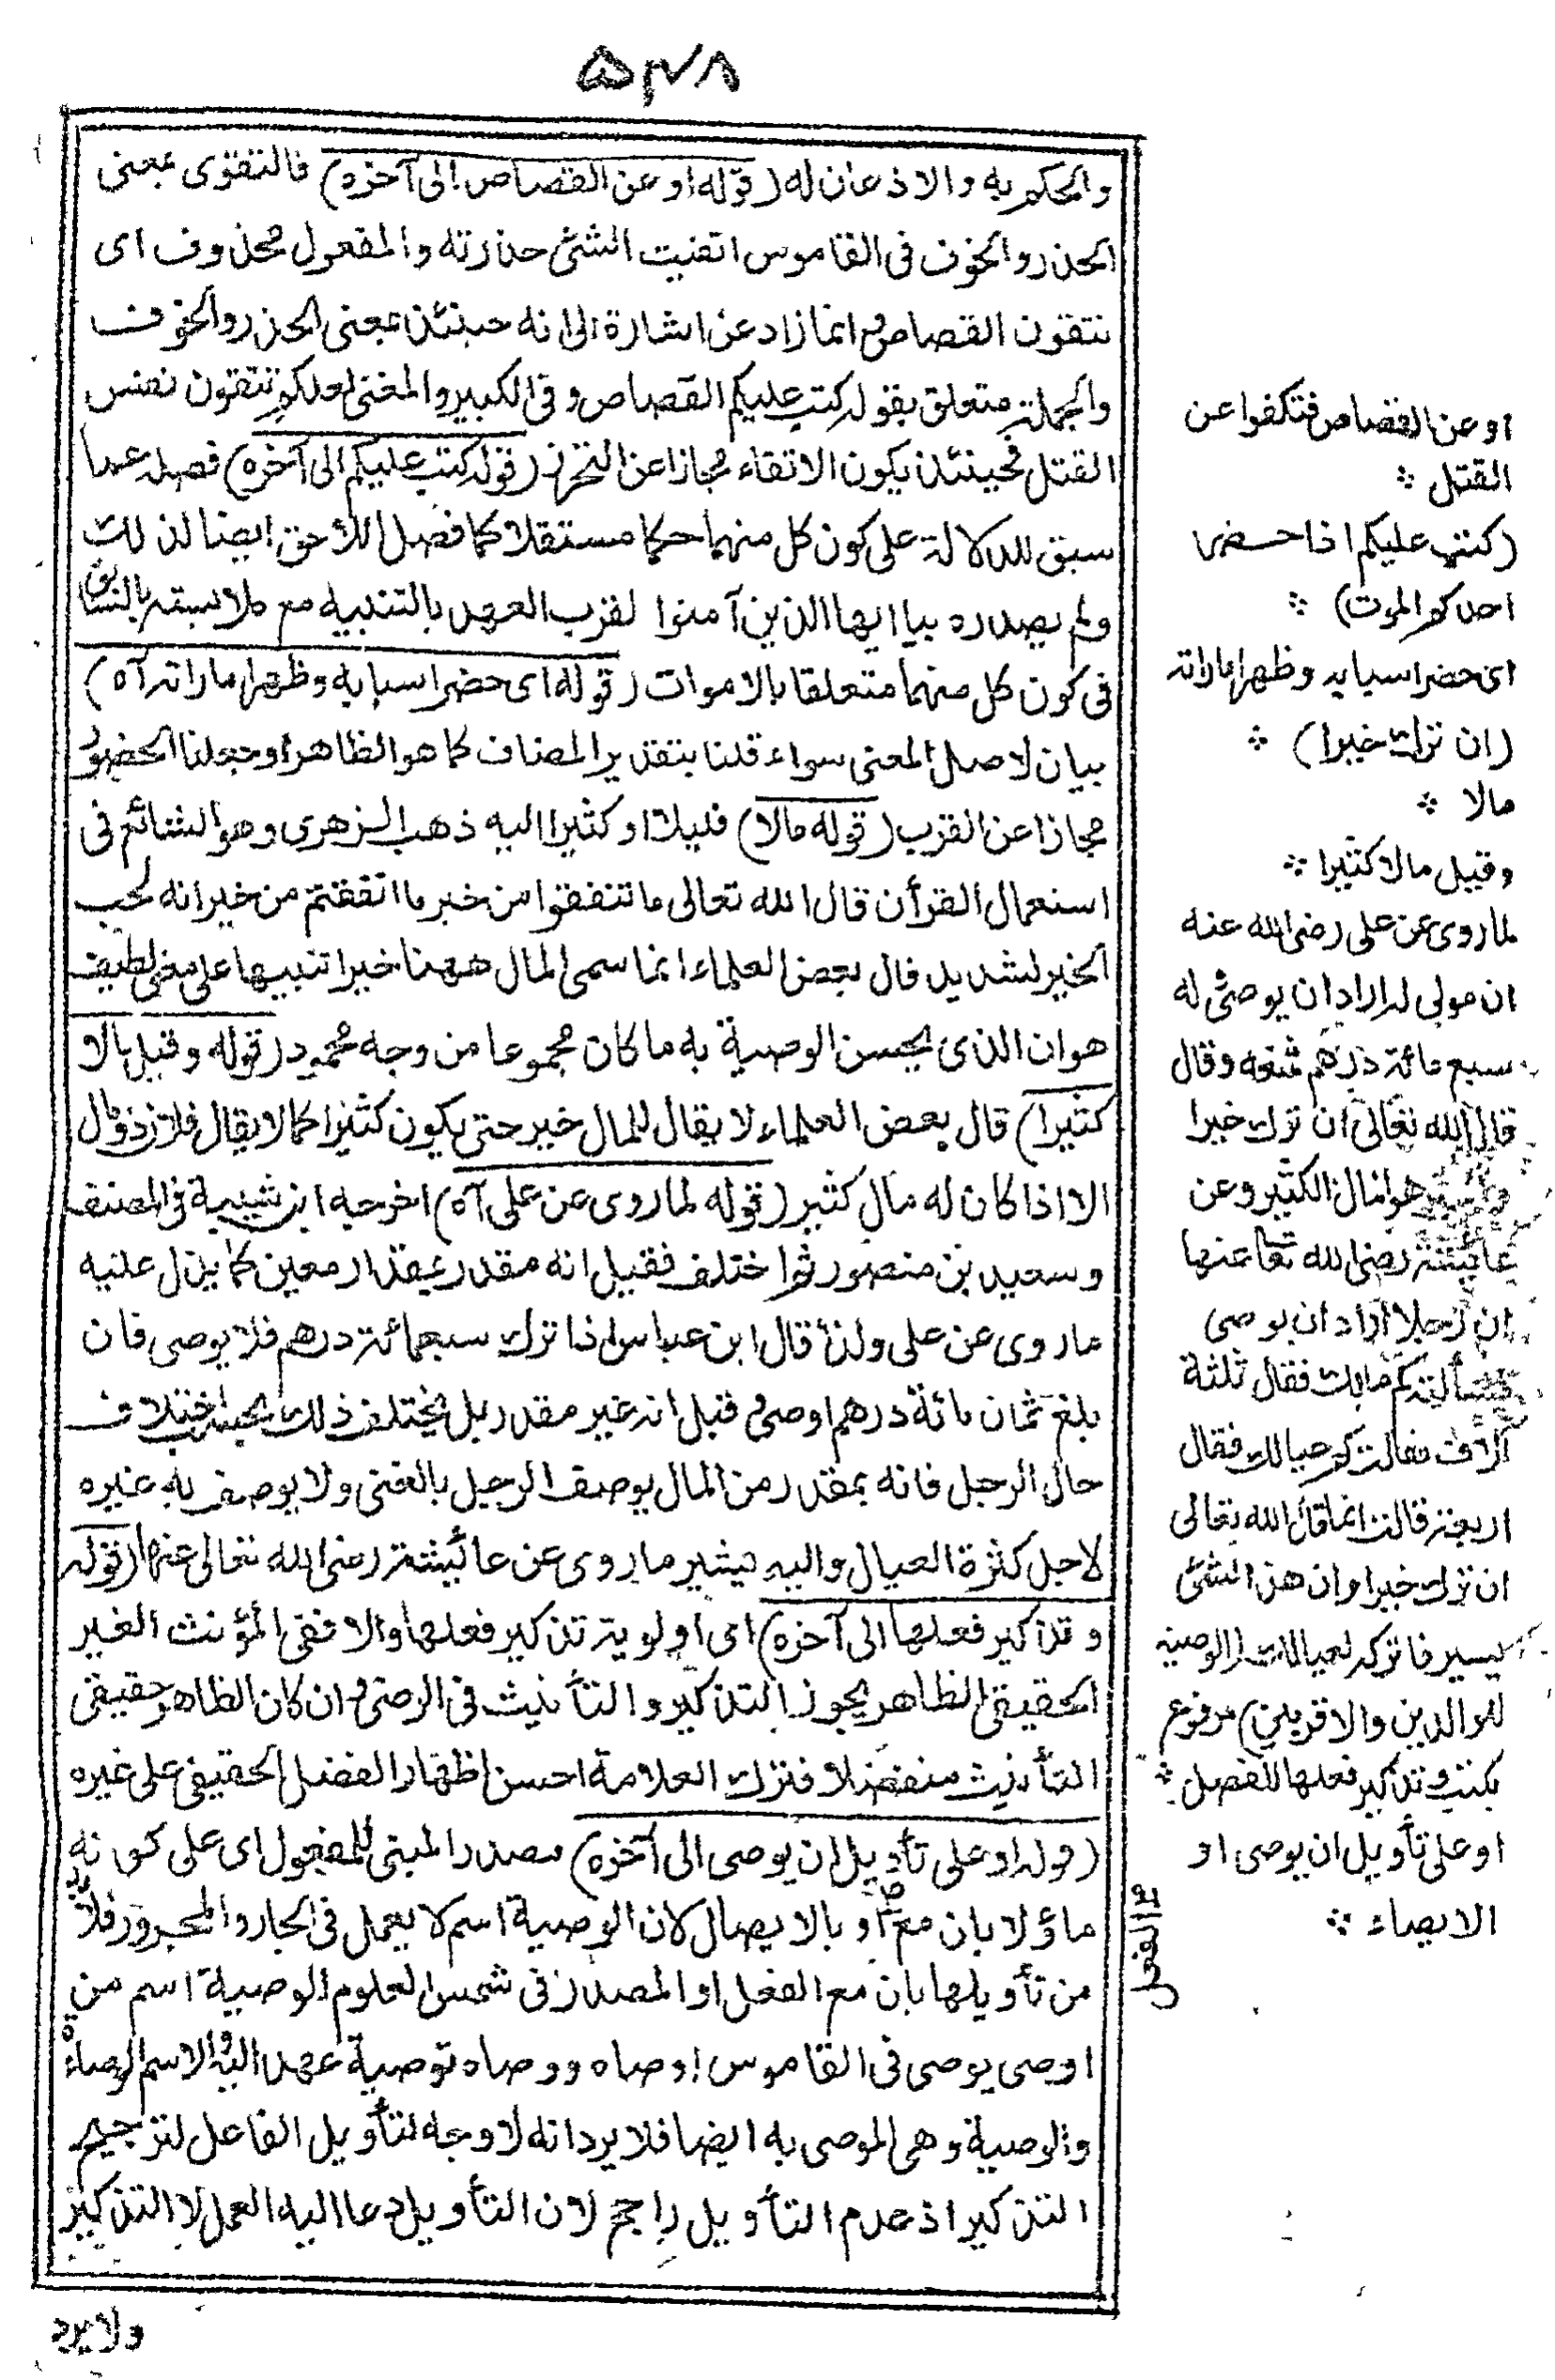 ٥٣٨
والحكم به والاذعان له (قوله او عن القصاص الى آخره) فالتقوى بمعنى
الحذر والخوف فى القاموس اتقيت الشئ حذرته والمفعول محذوف اى
تتقون القصاص وانما زاد عن اشارة الى انه حينئذ بمعنى الحذر والخوف
والجملة متعلق بقوله كتب عليكم القصاص وفى الكبير والمغنى لعلكم تتقون نفس
القتل فحينئذ يكون الاتقاء مجازا عن التحرز (قوله كتب عليكم الى آخره) فصله عما
سبق للدلالة على كون كل منهما حكما مستقلا كما فصل اللاحق ايضا لذلك
ولم يصدره بيا ايها الذين آمنوا لقرب العهد بالتنبيه مع ملابسته بالسابق
فى كون كل منهما متعلقا بالاموات (قوله اى حضر اسبابه وظهر اماراته آه)
بيان لاصل المعنى سواء قلنا بتقدير المضاف كما هو الظاهر او جعلنا الحضور
مجازا عن القرب (قوله مالا) قليلا او كثيرا اليه ذهب الزهرى وهو الشائع فى
استعمال القرأن قال الله تعالى ما تنفقوا من خير ما انفقتم من خير انه لحب
الخير لشديد قال بعض العلماء انما سمى المال ههنا خيرا تنبيها على معنى لطيف
هو ان الذى يحسن الوصية به ما كان مجموعا من وجه محمود (قوله وقيل مالا
كثيرا) قال بعض العلماء لا يقال للمال خير حتى يكون كثيرا كما لا يقال فلان ذو مال
الا اذا كان له مال كثير (قوله لما روى عن على آه) اخرجه ابن شيبة فى المصنف
وسعيد بن منصور ثم اختلف فقيل انه مقدر بمقدار معين كما يدل عليه
ما روى عن على ولذا قال ابن عباس اذا ترك سبعمائة درهم فلا يوصى فان
بلغ ثمان مائة درهم اوصى وقيل انه غير مقدر بل يختلف ذلك بحسب اختلاف
حال الرجل فانه بمقدر من المال يوصف الرجل بالغنى ولا يوصف به غيره
لاجل كثرة العيال واليه يشير ما روى عن عائيشة رضى الله تعالى عنها (قوله
وتذكير فعلها الى آخره) اى اولوية تذكير فعلها والا ففى المؤنث الغير
الحقيقى الظاهر يجوز التذكير والتأنيث فى الرضى وان كان الظاهر حقيقى
التأنيث منفصلا فترك العلامة احسن اظهارا لفضل الحقيقى على غيره
(قوله او على تأويل ان يوصى الى آخره) مصدر المبنى للمفعول اى على كونه
ماؤلا بان مع او بالايصال لان الوصية اسم لا يعمل فى الجار والمجرور فلا بد
من تأويلها بان مع الفعل او المصدر فى شمس العلوم الوصية اسم من
اوصى يوصى فى القاموس اوصاه ووصاه توصية عهد اليه والاسم الوصاة
والوصية وهى الموصى به ايضا فلا يرد انه لا وجه لتأويل الفاعل لترجيح
التذكير اذ عدم التأويل راجح لان التأويل دعا اليه العمل لا التذكير
ولا يرد
الفعل
او عن القصاص فتكفوا عن
القتل
(كتب عليكم اذا حضر
احدكم الموت)
اى حضر اسبابه وظهر اماراته
(ان ترك خيرا)
مالا
وقيل مالا كثيرا
لما روى عن على رضى الله عنه
ان مولى له اراد ان يوصى له
سبع مائة درهم فمنعه وقال
قال الله تعالى ان ترك خيرا
هو المال الكثير وعن
عائيشة رضى الله تعا عنها
ان رجلا اراد ان يوصى
فسألته كم مالك فقال ثلثة
آلاف فقالت كم عيالك فقال
اربعة قالت انما قال الله تعالى
ان ترك خيرا وان هذا الشئ
يسير فاتركه لعيالك (الوصية
للوالدين والاقربين) مرفوع
بكتب وتذكير فعلها للفصل
او على تأويل ان يوصى او
الايصاء